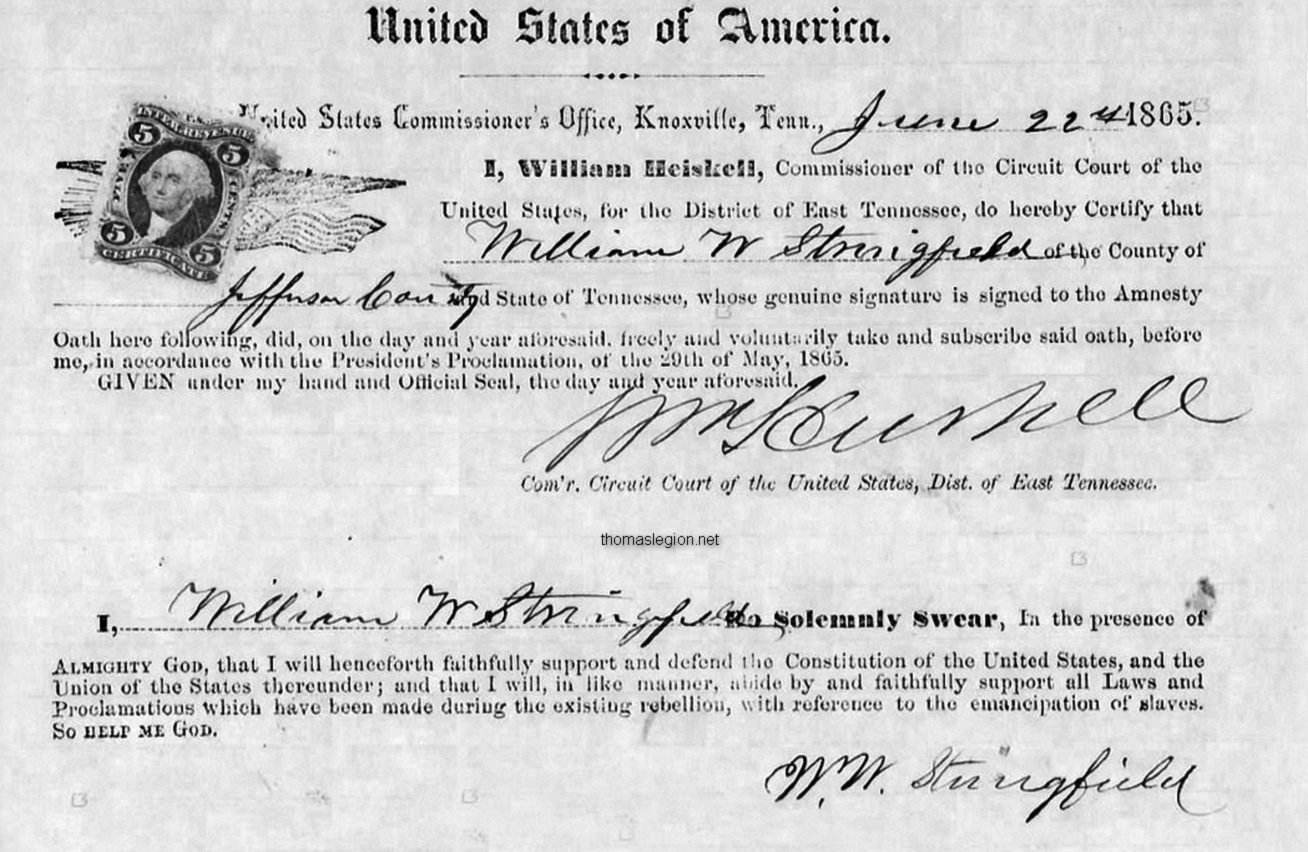 United States of America.
United States Commissioner's Office, Knoxville, Tenn., June 22nd 1865.
INTER. REVENUE
5 5
FIVE CENTS
5 5
CERTIFICATE
I, William Heiskell, Commissioner of the Circuit Court of the
United States, for the District of East Tennessee, do hereby Certify that
William W Stringfield of the County of
Jefferson County and State of Tennessee, whose genuine signature is signed to the Amnesty
Oath here following, did, on the day and year aforesaid, freely and voluntarily take and subscribe said oath, before
me, in accordance with the President's Proclamation, of the 29th of May, 1865.
GIVEN under my hand and Official Seal, the day and year aforesaid.
Wm Heiskell
Com'r. Circuit Court of the United States, Dist. of East Tennessee.
thomaslegion.net
I, William W Stringfield do Solemnly Swear, In the presence of
ALMIGHTY GOD, that I will henceforth faithfully support and defend the Constitution of the United States, and the
Union of the States thereunder; and that I will, in like manner, abide by and faithfully support all Laws and
Proclamations which have been made during the existing rebellion, with reference to the emancipation of slaves.
SO HELP ME GOD.
W. W. Stringfield